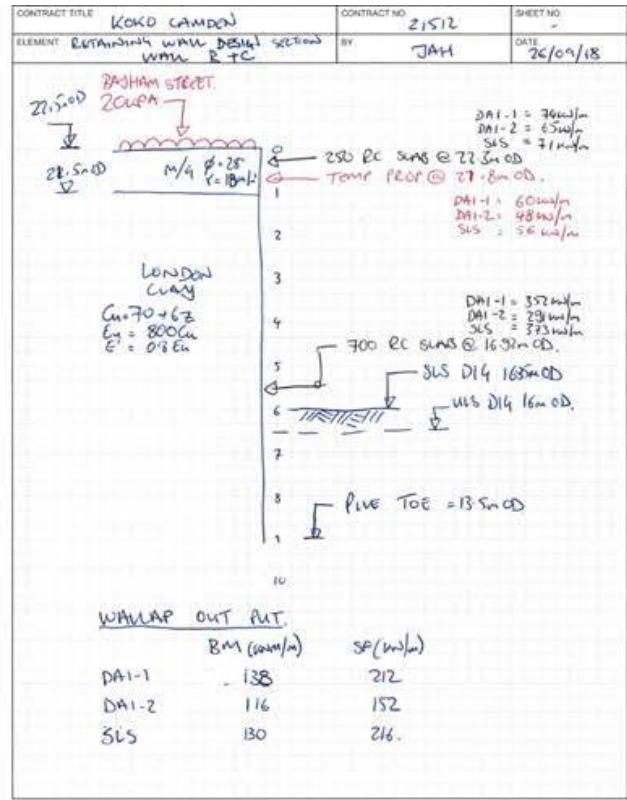 CONTRACT TITLE KOKO CAMDEN
CONTRACT NO. 21512
SHEET NO. -
ELEMENT RETAINING WALL DESIGN SECTION
WALL B + C
BY JAH
DATE 26/09/18
BASHAM STREET.
20kPA
22.5mOD
21.5mOD
M/G φ=25
γ=18kN/
0
1
2
3
4
5
6
7
8
9
10
DA1-1 = 74kN/m
DA1-2 = 65kN/m
SLS = 71kN/m
250 RC SLAB @ 22.3mOD
TEMP PROP @ 21.8mOD.
DA1-1 = 60kN/m
DA1-2 = 48kN/m
SLS = 56kN/m
LONDON
CLAY
Cu=70+6z
Eu = 800Cu
E' = 0.8Eu
DA1-1 = 352kN/m
DA1-2 = 291kN/m
SLS = 373kN/m
700 RC SLAB @ 16.92mOD.
SLS DIG 16.35mOD
ULS DIG 16mOD.
PILE TOE = 13.5mOD
WALLAP OUT PUT.
BM (kNm/m) SF (kN/m)
DA1-1 138 212
DA1-2 116 152
SLS 130 216.